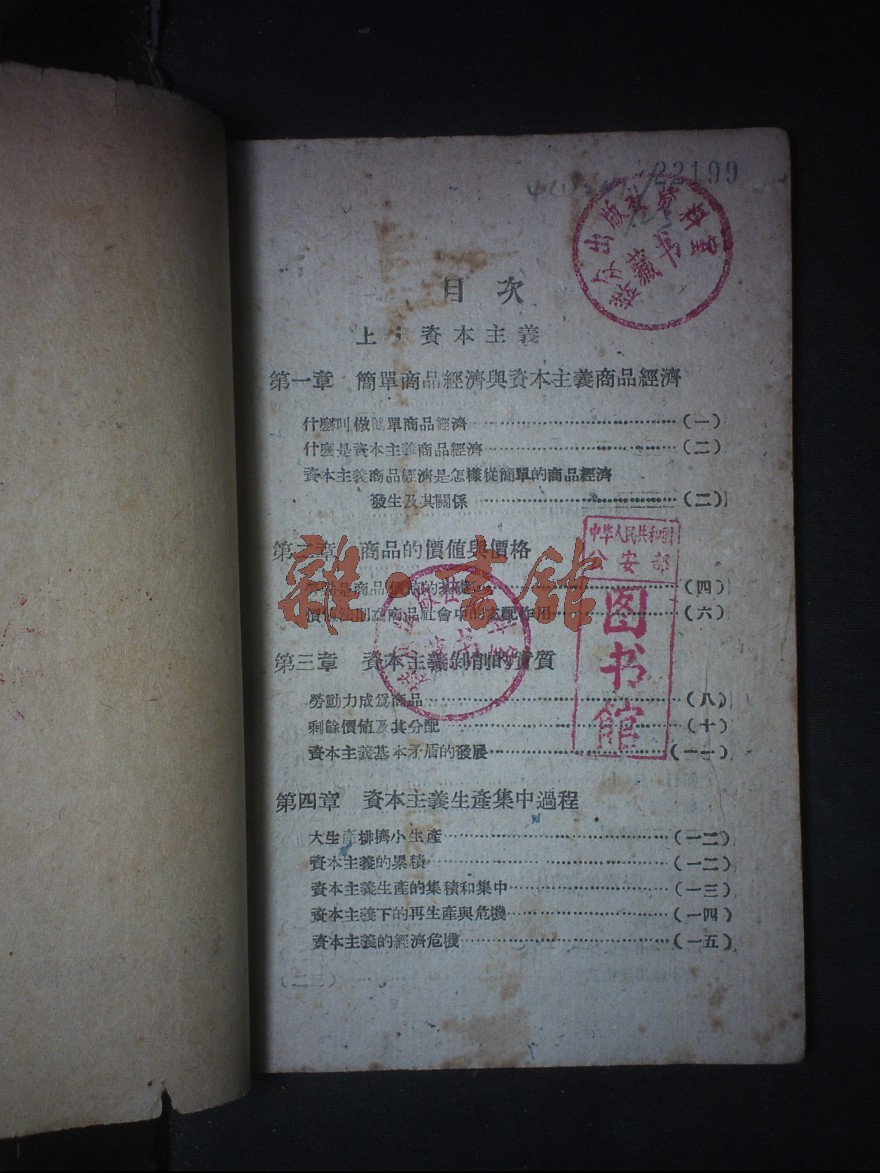 22199
群众出版社資料室
藏书
目次
上：資本主義
第一章 簡單商品經濟與資本主義商品經濟
什麽叫做簡單商品經濟…………(一)
什麽是資本主義商品經濟…………(二)
資本主義商品經濟是怎樣從簡單的商品經濟
發生及其關係…………(二)
中华人民共和國
公安部
图书馆
第二章 商品的價値與價格
是商品價値的基礎…………(四)
價値法則在商品社會中的支配作用…………(六)
雜·書館
第三章 資本主義剝削的實質
勞動力成爲商品…………(八)
剩餘價値及其分配…………(十)
資本主義基本矛盾的發展…………(一一)
第四章 資本主義生產集中過程
大生產排擠小生產…………(一二)
資本主義的累積…………(一二)
資本主義生產的集積和集中…………(一三)
資本主義下的再生產與危機…………(一四)
資本主義的經濟危機…………(一五)